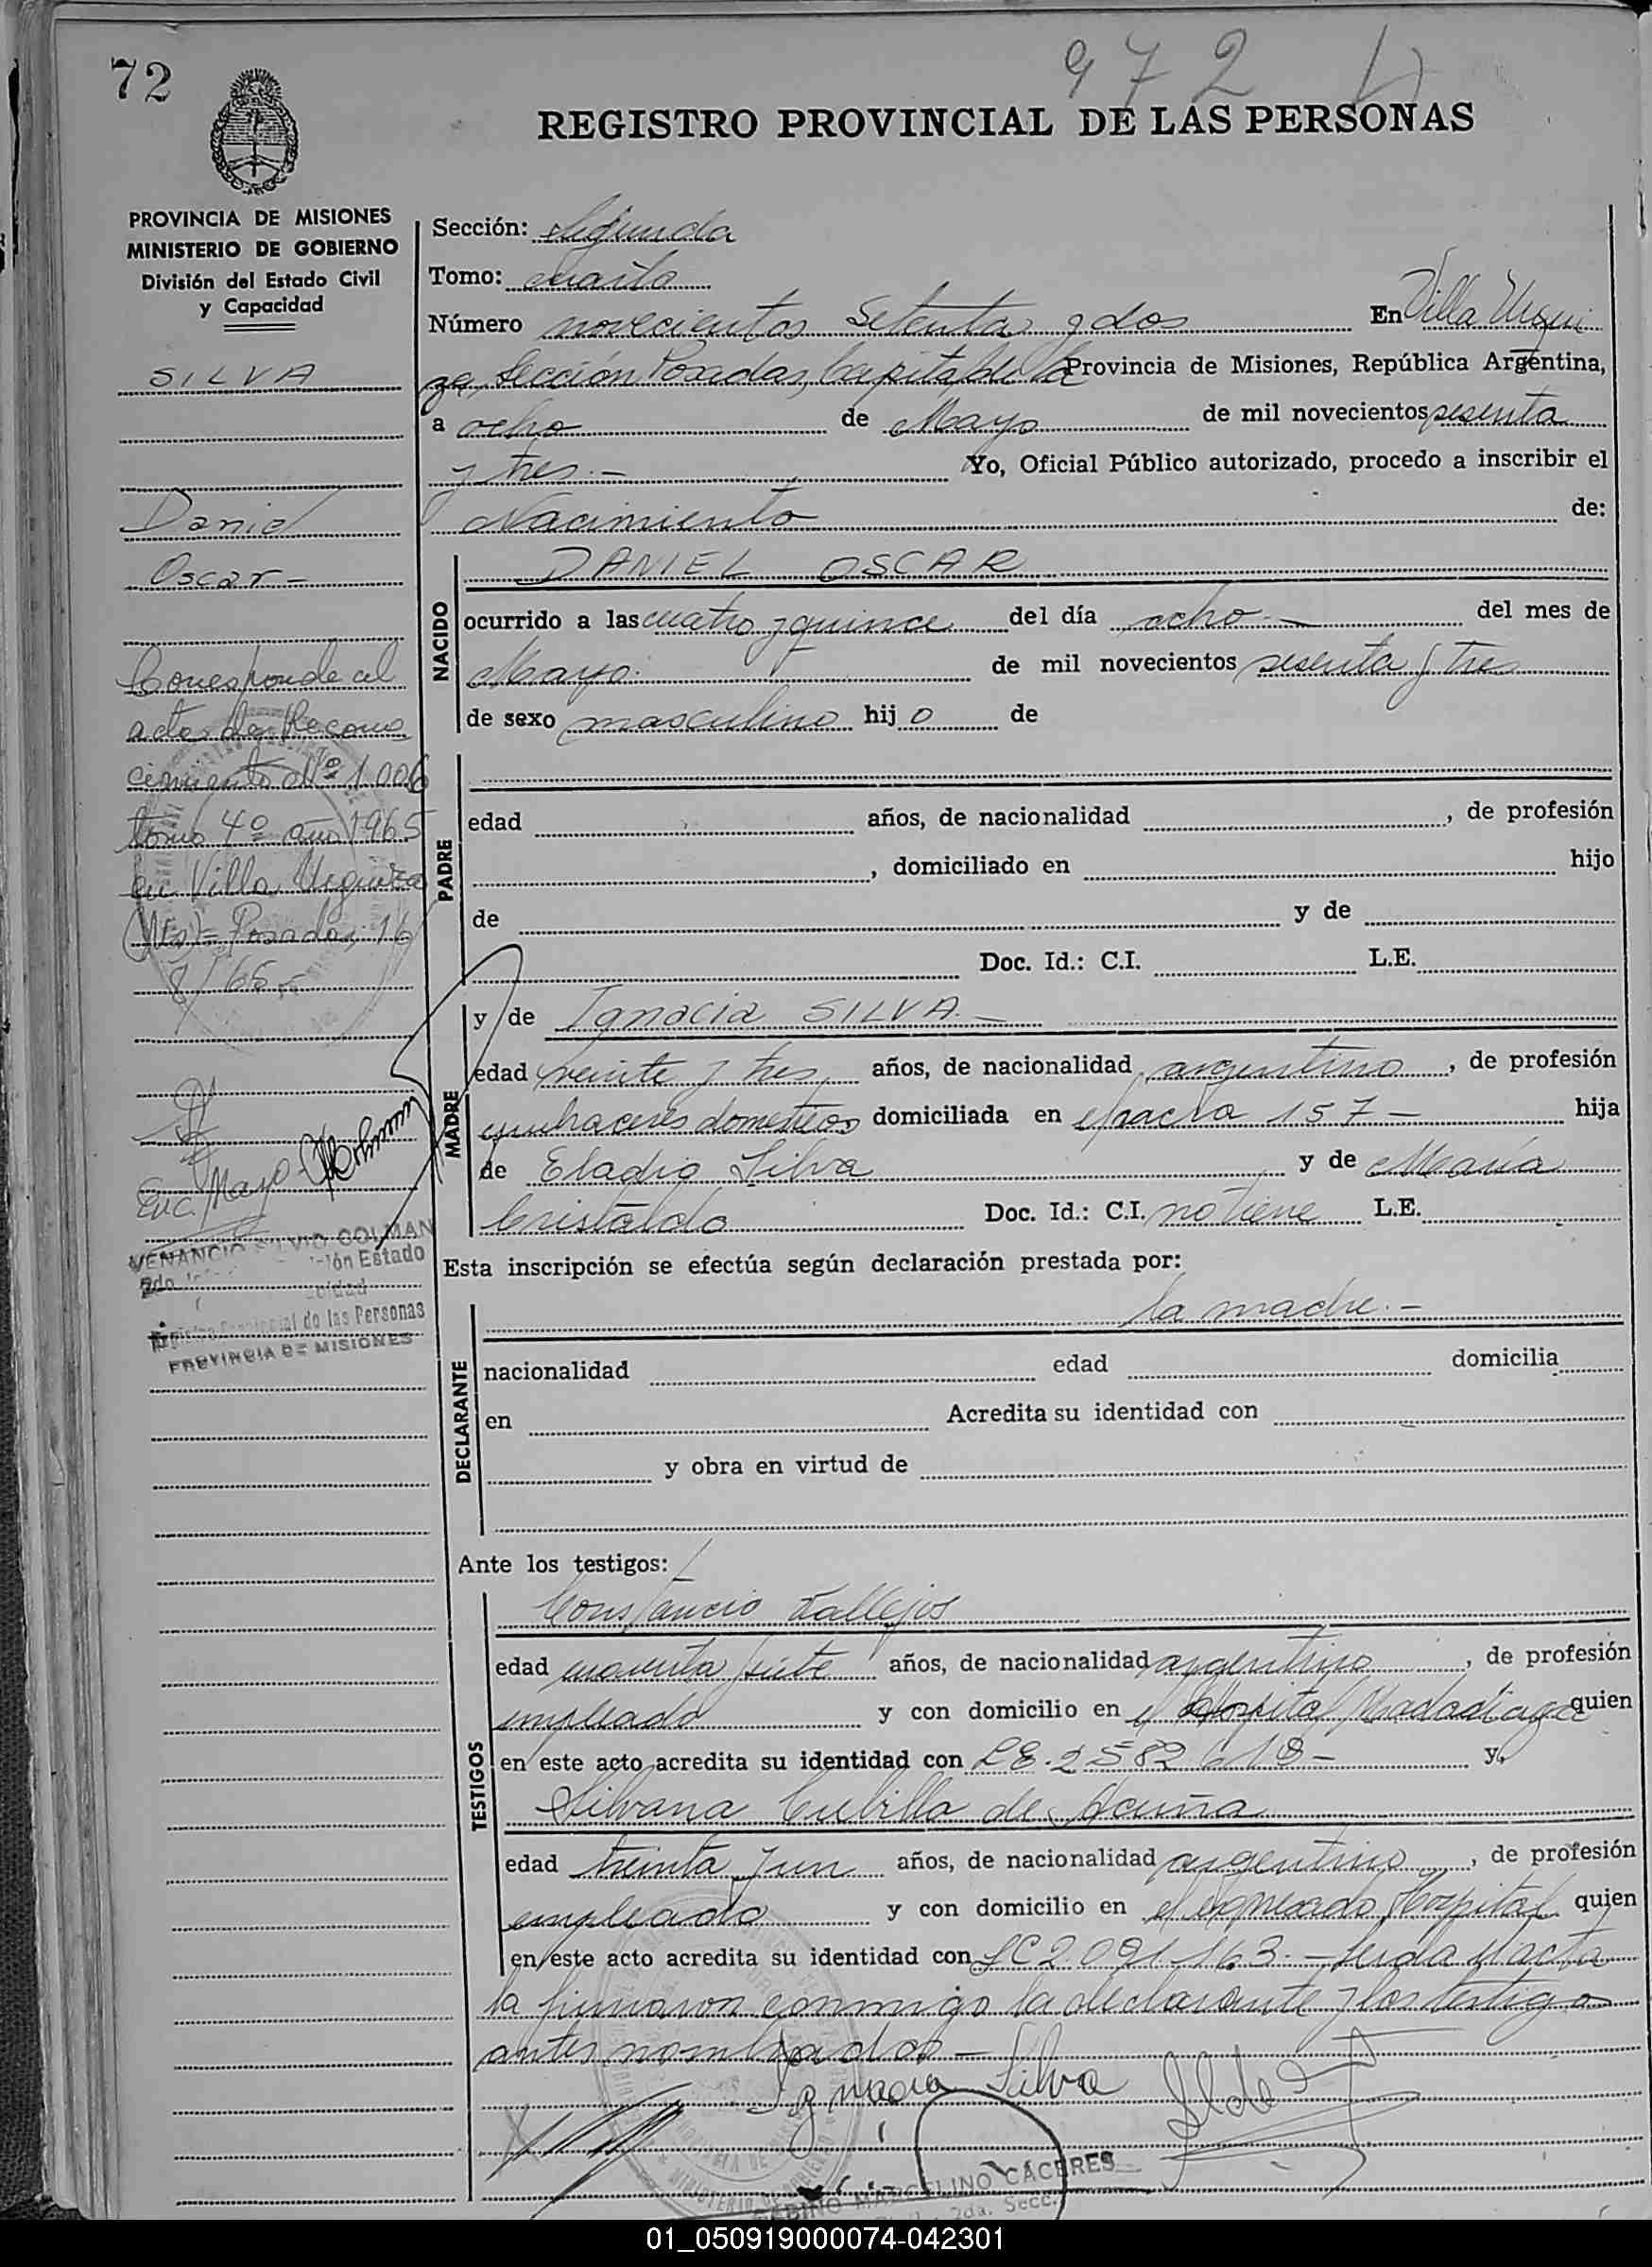 72
972
REGISTRO PROVINCIAL DE LAS PERSONAS
PROVINCIA DE MISIONES
MINISTERIO DE GOBIERNO
División del Estado Civil
y Capacidad
SILVA
Daniel
Oscar -
Corresponde al
acta de Recono
cimiento Nº 1.006
tomo 4º año 1965
en Villa Urquiza
(Ms) = Posadas, 16
8/65
Enc. Mayo
VENANCIO SILVIO COLMAN
Estado
Provincial de las Personas
PROVINCIA DE MISIONES
Sección: Segunda
Tomo: cuarto
Número novecientos setenta y dos En Villa Urqui
za, Sección Posadas, Capital de la Provincia de Misiones, República Argentina,
a ocho de Mayo de mil novecientos sesenta
y tres.- Yo, Oficial Público autorizado, procedo a inscribir el
Nacimiento de:
NACIDO
DANIEL OSCAR
ocurrido a las cuatro y quince del día ocho.- del mes de
Mayo. de mil novecientos sesenta y tres
de sexo masculino hijo de
PADRE
edad años, de nacionalidad , de profesión
, domiciliado en hijo
de y de
Doc. Id.: C.I. L.E.
MADRE
y de Ignacia SILVA.-
edad veinte y tres años, de nacionalidad argentino , de profesión
quehaceres domesticos domiciliada en chacra 157- hija
de Eladio Silva y de María
Cristaldo Doc. Id.: C.I. no tiene L.E.
Esta inscripción se efectúa según declaración prestada por:
DECLARANTE
la madre.-
nacionalidad edad domicilia
en Acredita su identidad con
y obra en virtud de
Ante los testigos:
TESTIGOS
Constancio Vallejos
edad cuarenta siete años, de nacionalidad argentino , de profesión
empleado y con domicilio en el Hospital Madariaga quien
en este acto acredita su identidad con LE. 2582618- y,
Silvana Cubilla de Acuña
edad treinta y un años, de nacionalidad argentino , de profesión
empleado y con domicilio en el expresado Hospital quien
en este acto acredita su identidad con LC 2.091.163.- Leida el acta
la firmaron conmigo la declarante y los testigos
antes nombrados-
Ignacia Silva
GABINO MARCELINO CACERES
2da. Secc.
01_050919000074-042301